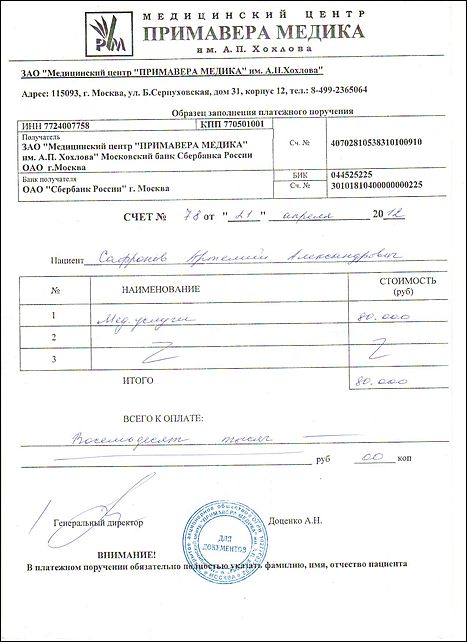 МЕДИЦИНСКИЙ ЦЕНТР
ПРИМАВЕРА МЕДИКА
им. А.П. Хохлова
ЗАО "Медицинский центр "ПРИМАВЕРА МЕДИКА" им. А.П.Хохлова"
Адрес: 115093, г. Москва, ул. Б.Серпуховская, дом 31, корпус 12, тел.: 8-499-2365064
Образец заполнения платежного поручения
ИНН 7724007758 КПП 770501001
Получатель
ЗАО "Медицинский центр "ПРИМАВЕРА МЕДИКА"
им. А.П. Хохлова" Московский банк Сбербанка России
ОАО г.Москва
Сч. № 40702810538310100910
Банк получателя
ОАО "Сбербанк России" г. Москва
БИК 044525225
Сч. № 30101810400000000225
СЧЕТ № 78 от "21" апреля 2012
Пациент Сафронов Артемий Александрович
№ НАИМЕНОВАНИЕ СТОИМОСТЬ (руб)
1 Мед. услуги 80.000
2
3
ИТОГО 80.000
ВСЕГО К ОПЛАТЕ:
Восемьдесят тысяч
руб 00 коп
Генеральный директор Доценко А.Н.
ДЛЯ
ДОКУМЕНТОВ
ВНИМАНИЕ!
В платежном поручении обязательно полностью указать фамилию, имя, отчество пациента